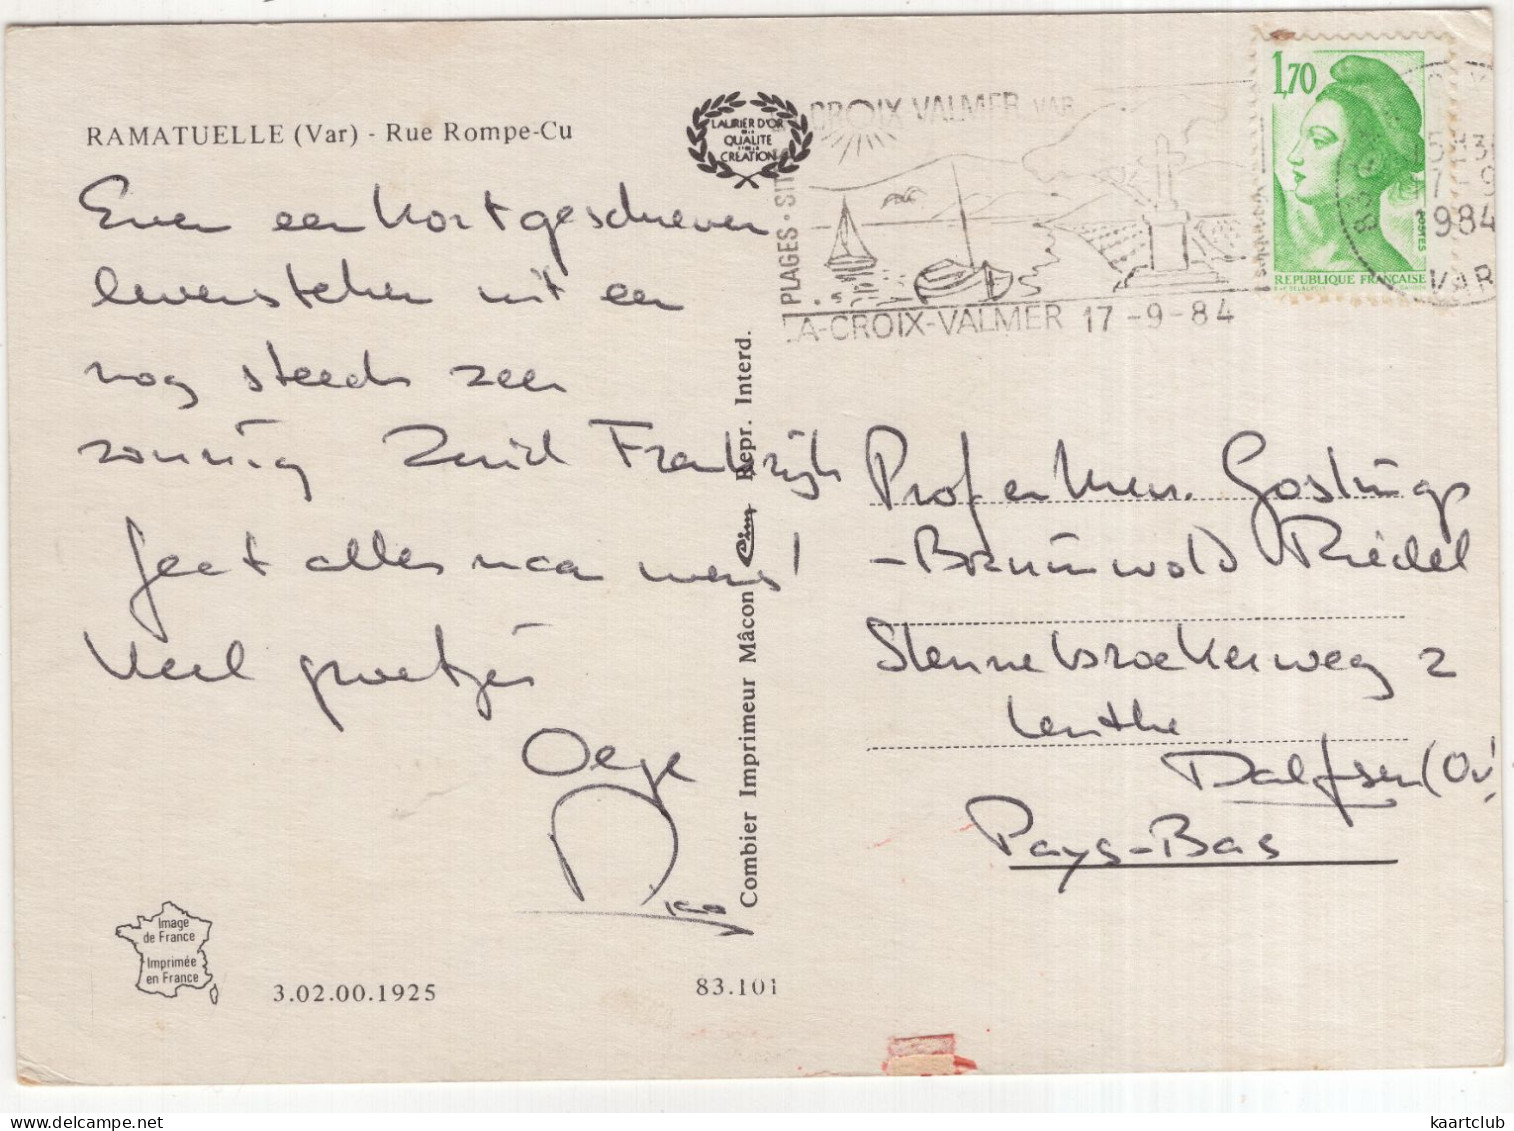 RAMATUELLE (Var) - Rue Rompe-Cu
Even een kort geschreven
levensteken uit een
nog steeds zeer
zonnig Zuid Frankrijk
Gaat alles naar wens!
Veel groetjes
LAURIER D'OR
DE LA
QUALITE
ET DE LA
CREATION
CROIX VALMER VAR
PLAGES · SIT
LA-CROIX-VALMER 17-9-84
1,70
POSTES
REPUBLIQUE FRANÇAISE
17-9
984
VAR
Combier Imprimeur Mâcon Cim Repr. Interd.
Prof en Mevr. Gostings
-Brünwold Riedel
Stennebroekerweg 2
Lenthe
Dalfsen (Ov)
Pays-Bas
Image
de France
Imprimée
en France
3.02.00.1925
83.101
kaartclub